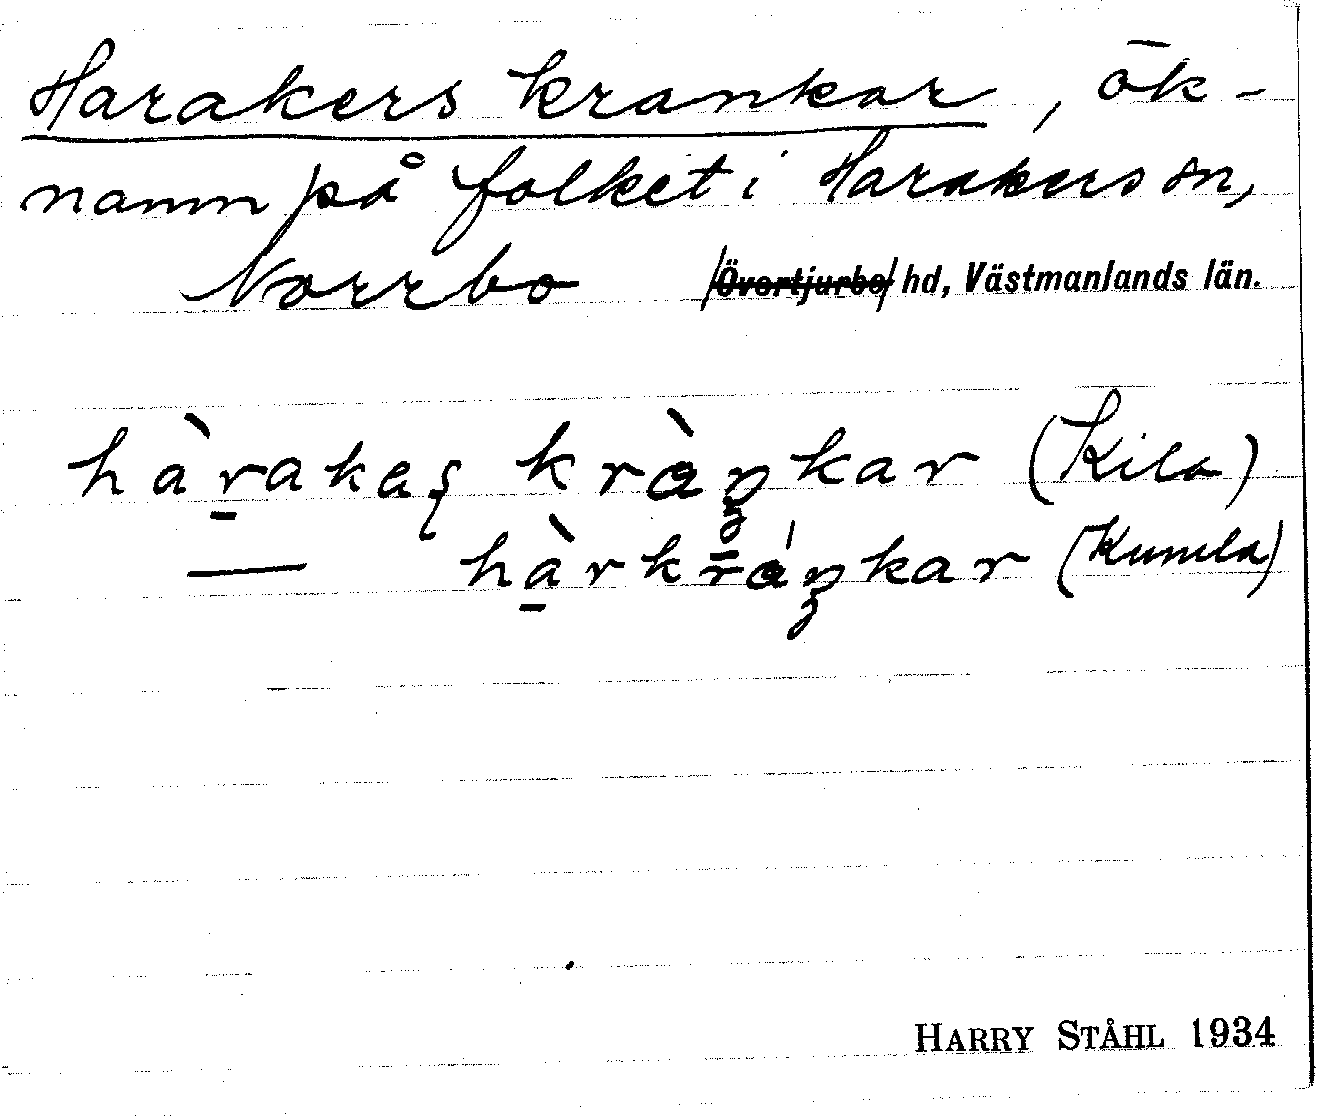 Harakers krankar, ök-
namn på folket i Harakers sn,
Norrbo /Övertjurbo/ hd, Västmanlands län.
hàrakes̨ kràŋkar (Kila)
— hàrkráŋkar (Kumla)
HARRY STÅHL 1934